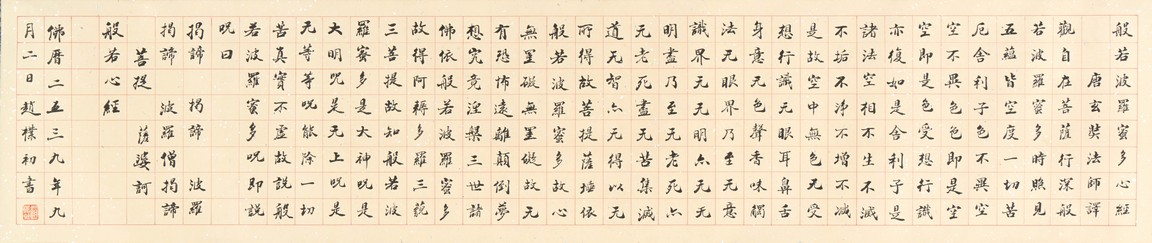 般若波羅蜜多心經
唐玄奘法師譯
觀自在菩薩行深般
若波羅蜜多時照見
五蘊皆空度一切苦
厄舍利子色不異空
空不異色色即是空
空即是色受想行識
亦復如是舍利子是
諸法空相不生不滅
不垢不淨不增不減
是故空中無色无受
想行識无眼耳鼻舌
身意无色聲香味觸
法无眼界乃至无意
識界无无明亦无无
明盡乃至无老死亦
无老死盡无苦集滅
道无智亦无得以无
所得故菩提薩埵依
般若波羅蜜多故心
無罣礙無罣礙故无
有恐怖遠離顛倒夢
想究竟涅槃三世諸
佛依般若波羅蜜多
故得阿耨多羅三藐
三菩提故知般若波
羅蜜多是大神呪是
大明呪是无上呪是
无等等呪能除一切
苦真實不虛故說般
若波羅蜜多呪即說
呪曰
揭諦 揭諦 波羅
揭諦 波羅僧揭諦
菩提 薩婆訶
般若心經
佛曆二五三九年九
月二日趙樸初書